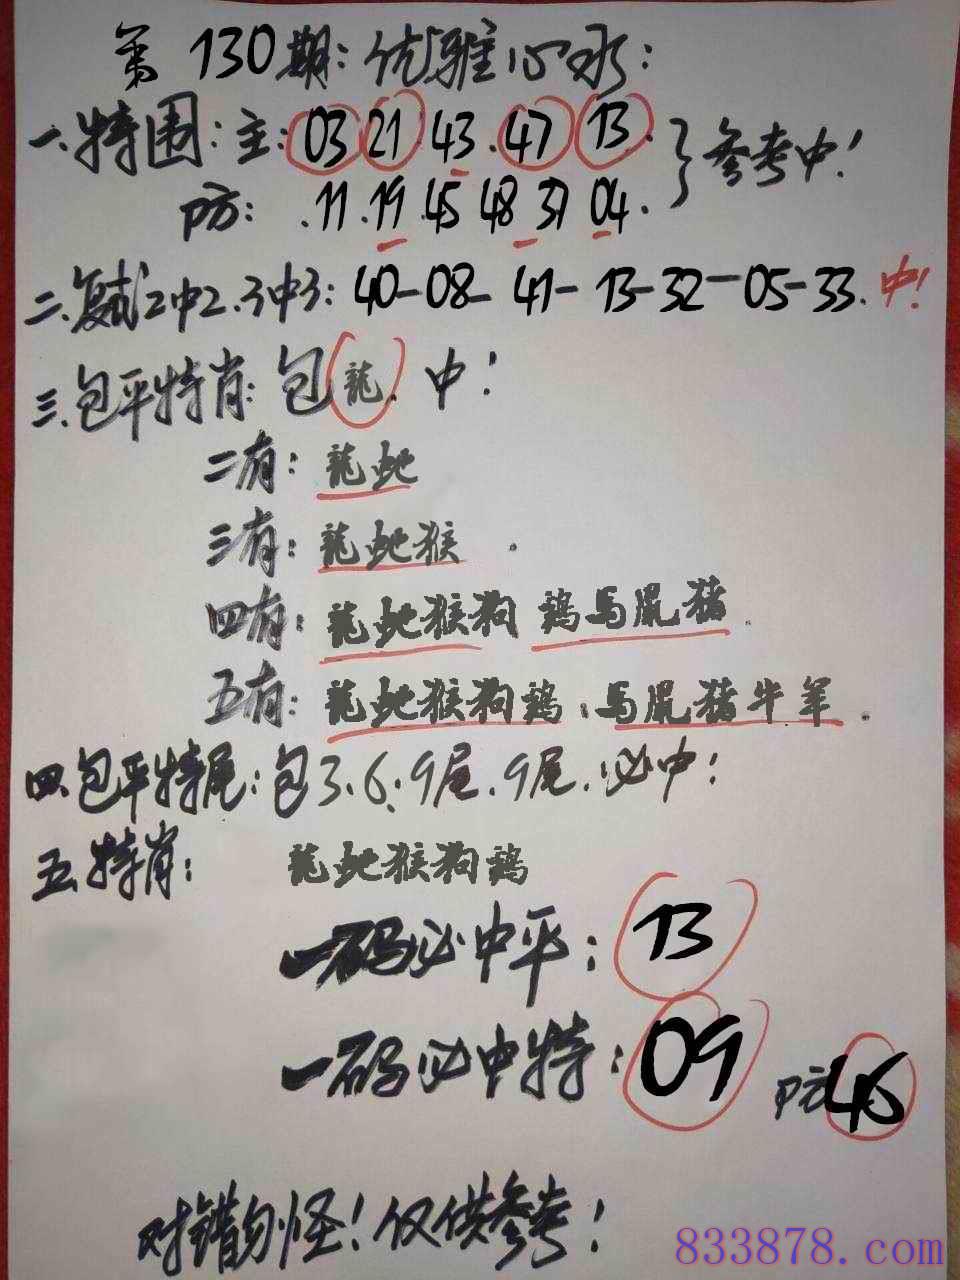 第130期：优雅心水：
一.特围：主：03 21.43.47 13.}参考中！
防：.11.19.45 48 37 04.
二.复式2中2.3中3：40-08-41-13-32-05-33.中！
三.包平特肖：包龍.中！
二有：龍虵
三有：龍虵猴.
四有：龍虵猴狗 鷄馬鼠猪.
五有：龍虵猴狗鷄.馬鼠猪牛羊.
四.包平特尾：包3.6.9尾.9尾.必中！
五.特肖：龍虵猴狗鷄
一码必中平：13
一码必中特：09 防46
对错勿怪！仅供参考！
833878.com